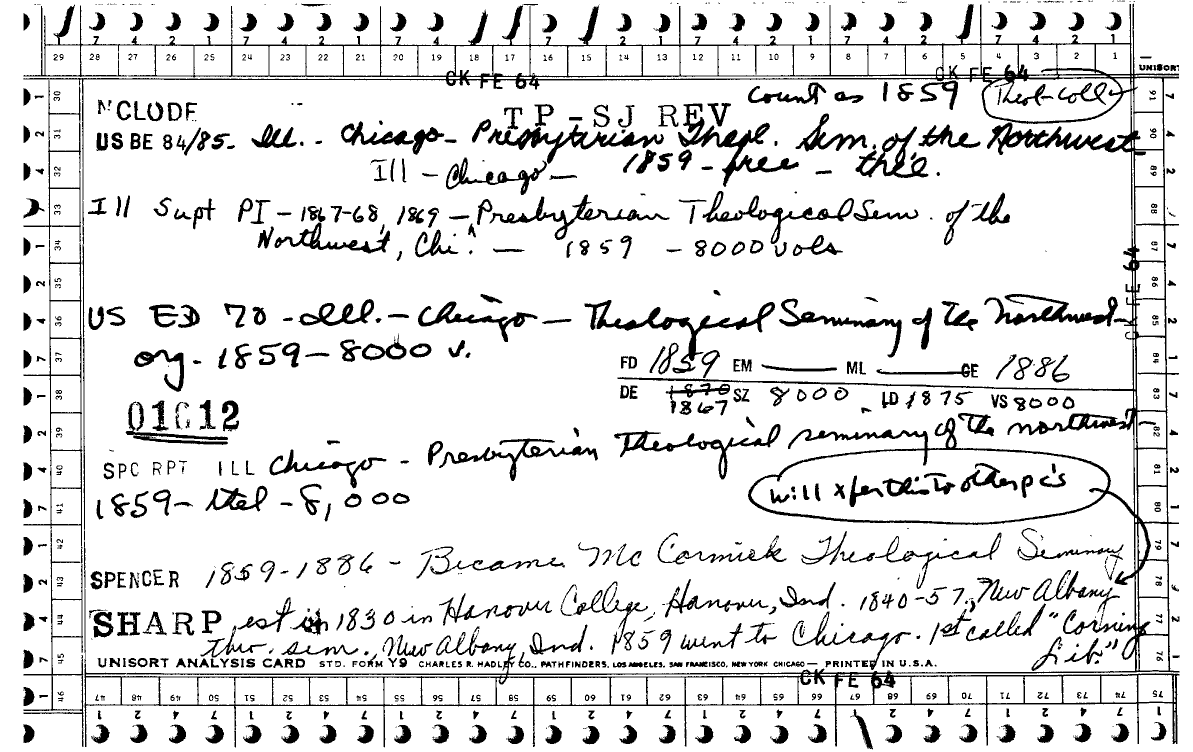 7 4 2 1 7 4 2 1 7 4 2 1 7 4 2 1 7 4 2 1 7 4 2 1 7 4 2 1
29 28 27 26 25 24 23 22 21 20 19 18 17 16 15 14 13 12 11 10 9 8 7 6 5 4 3 2 1
CK FE 64 CK FE 64 UNISORT
NCLODE TP-SJ REV Count as 1859 Theol-coll
US BE 84/85- Ill. - Chicago- Presbyterian Theol. Sem. of the Northwest-
Ill - Chicago - 1859 - free - theo.
Ill Supt PI - 1867-68, 1869 - Presbyterian Theological Sem. of the
Northwest, Chi. - 1859 - 8000 vols
CK FE 64
US ED 70 - Ill. - Chicago - Theological Seminary of the Northwest-
org. 1859 - 8000 v.
FD 1859 EM — ML — CE 1886
DE 1870 1867 SZ 8000 LD 1875 VS 8000
01012
SPC RPT ILL Chicago - Presbyterian Theological seminary of the northwest-
1859- - 8,000
will xfer this to other pcs
SPENCER 1859-1886 - Became McCormick Theological Seminary
SHARP est in 1830 in Hanover College, Hanover, Ind. 1840-57, New Albany
theo. sem., New Albany, Ind. 1859 went to Chicago. 1st called "Corning
Lib."
UNISORT ANALYSIS CARD STD. FORM Y9 CHARLES R. HADLEY CO., PATHFINDERS, LOS ANGELES, SAN FRANCISCO, NEW YORK CHICAGO — PRINTED IN U.S.A.
CK FE 64